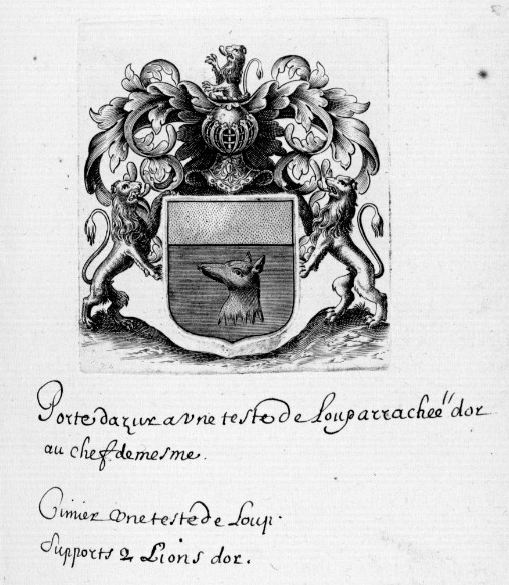 Porte dazur a vne teste de loup arrachée dor
au chef de mesme.
Cimier vne teste de Loup.
Supports 2 Lions dor.